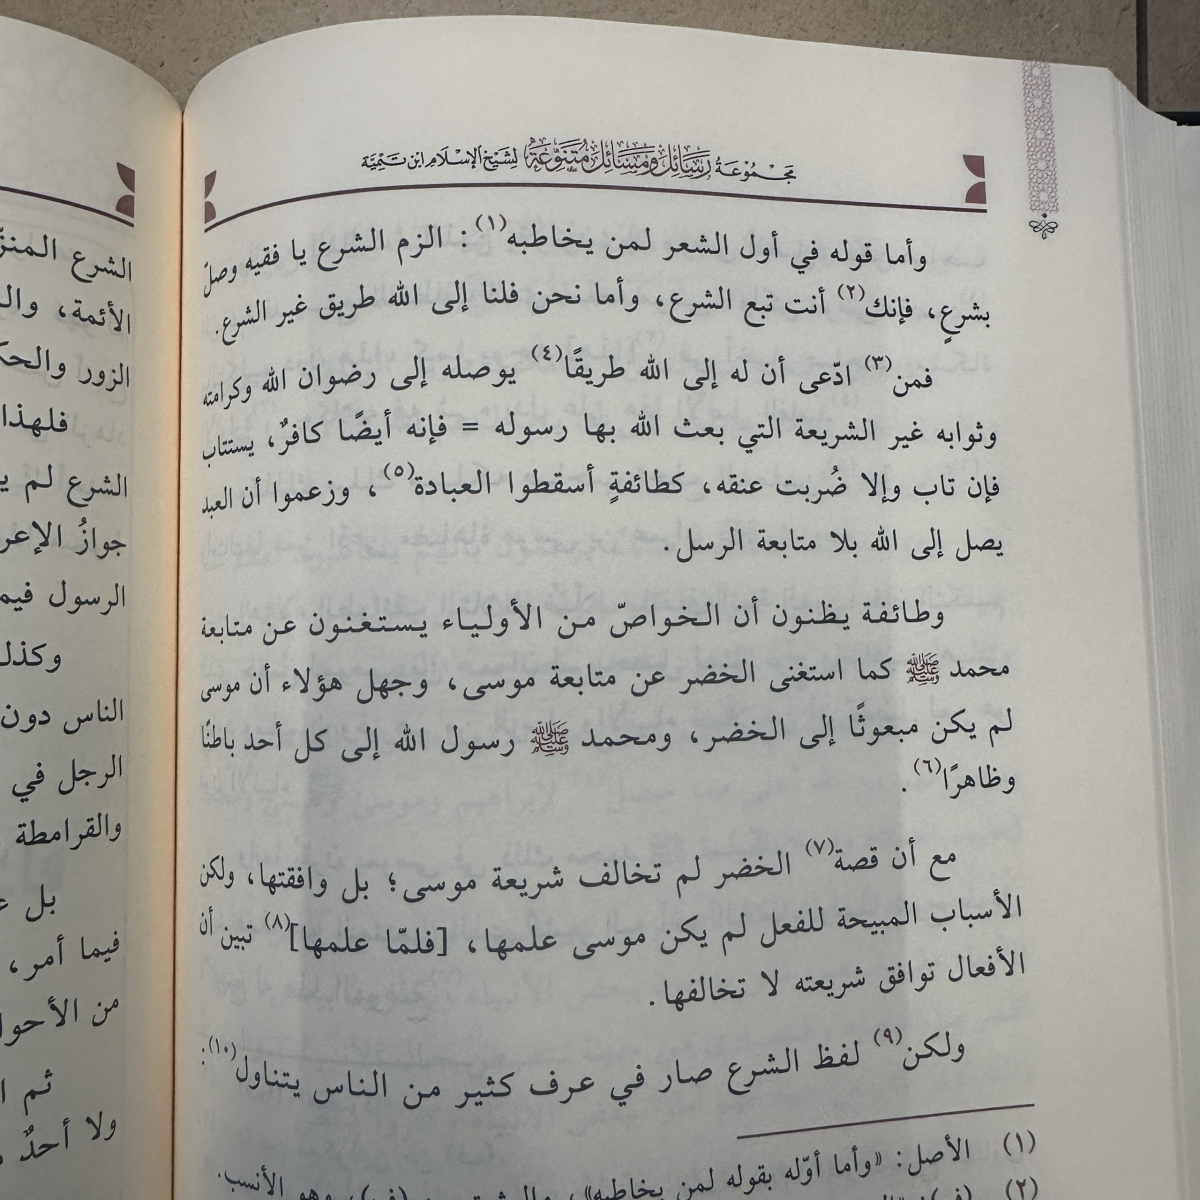 مجموعة رسائل ومسائل متنوعة لشيخ الإسلام ابن تيمية
وأما قوله في أول الشعر لمن يخاطبه(١): الزم الشرع يا فقيه وصلّ
بشرعٍ، فإنك(٢) أنت تبع الشرع، وأما نحن فلنا إلى الله طريق غير الشرع.
فمن(٣) ادّعى أن له إلى الله طريقًا(٤) يوصله إلى رضوان الله وكرامته
وثوابه غير الشريعة التي بعث الله بها رسوله = فإنه أيضًا كافرٌ، يستتاب
فإن تاب وإلا ضُربت عنقه، كطائفةٍ أسقطوا العبادة(٥)، وزعموا أن العبد
يصل إلى الله بلا متابعة الرسل.
وطائفة يظنون أن الخواصّ من الأولياء يستغنون عن متابعة
محمد ﷺ كما استغنى الخضر عن متابعة موسى، وجهل هؤلاء أن موسى
لم يكن مبعوثًا إلى الخضر، ومحمد ﷺ رسول الله إلى كل أحد باطنًا
وظاهرًا(٦).
مع أن قصة(٧) الخضر لم تخالف شريعة موسى؛ بل وافقتها، ولكن
الأسباب المبيحة للفعل لم يكن موسى علمها، [فلمّا علمها](٨) تبين أن
الأفعال توافق شريعته لا تخالفها.
ولكن(٩) لفظ الشرع صار في عرف كثير من الناس يتناول(١٠):
(١) الأصل: «وأما أوّله بقوله لمن يخاطبه»، وهو الأنسب.
(٢)
الشرع
الأئمة،
الزور
فلهذا
الشرع لم
جوازُ
الرسول فيما
الناس دون
الرجل في
والقرامطة
بل
فيما أمر،
من
ثم
ولا أحدٌ